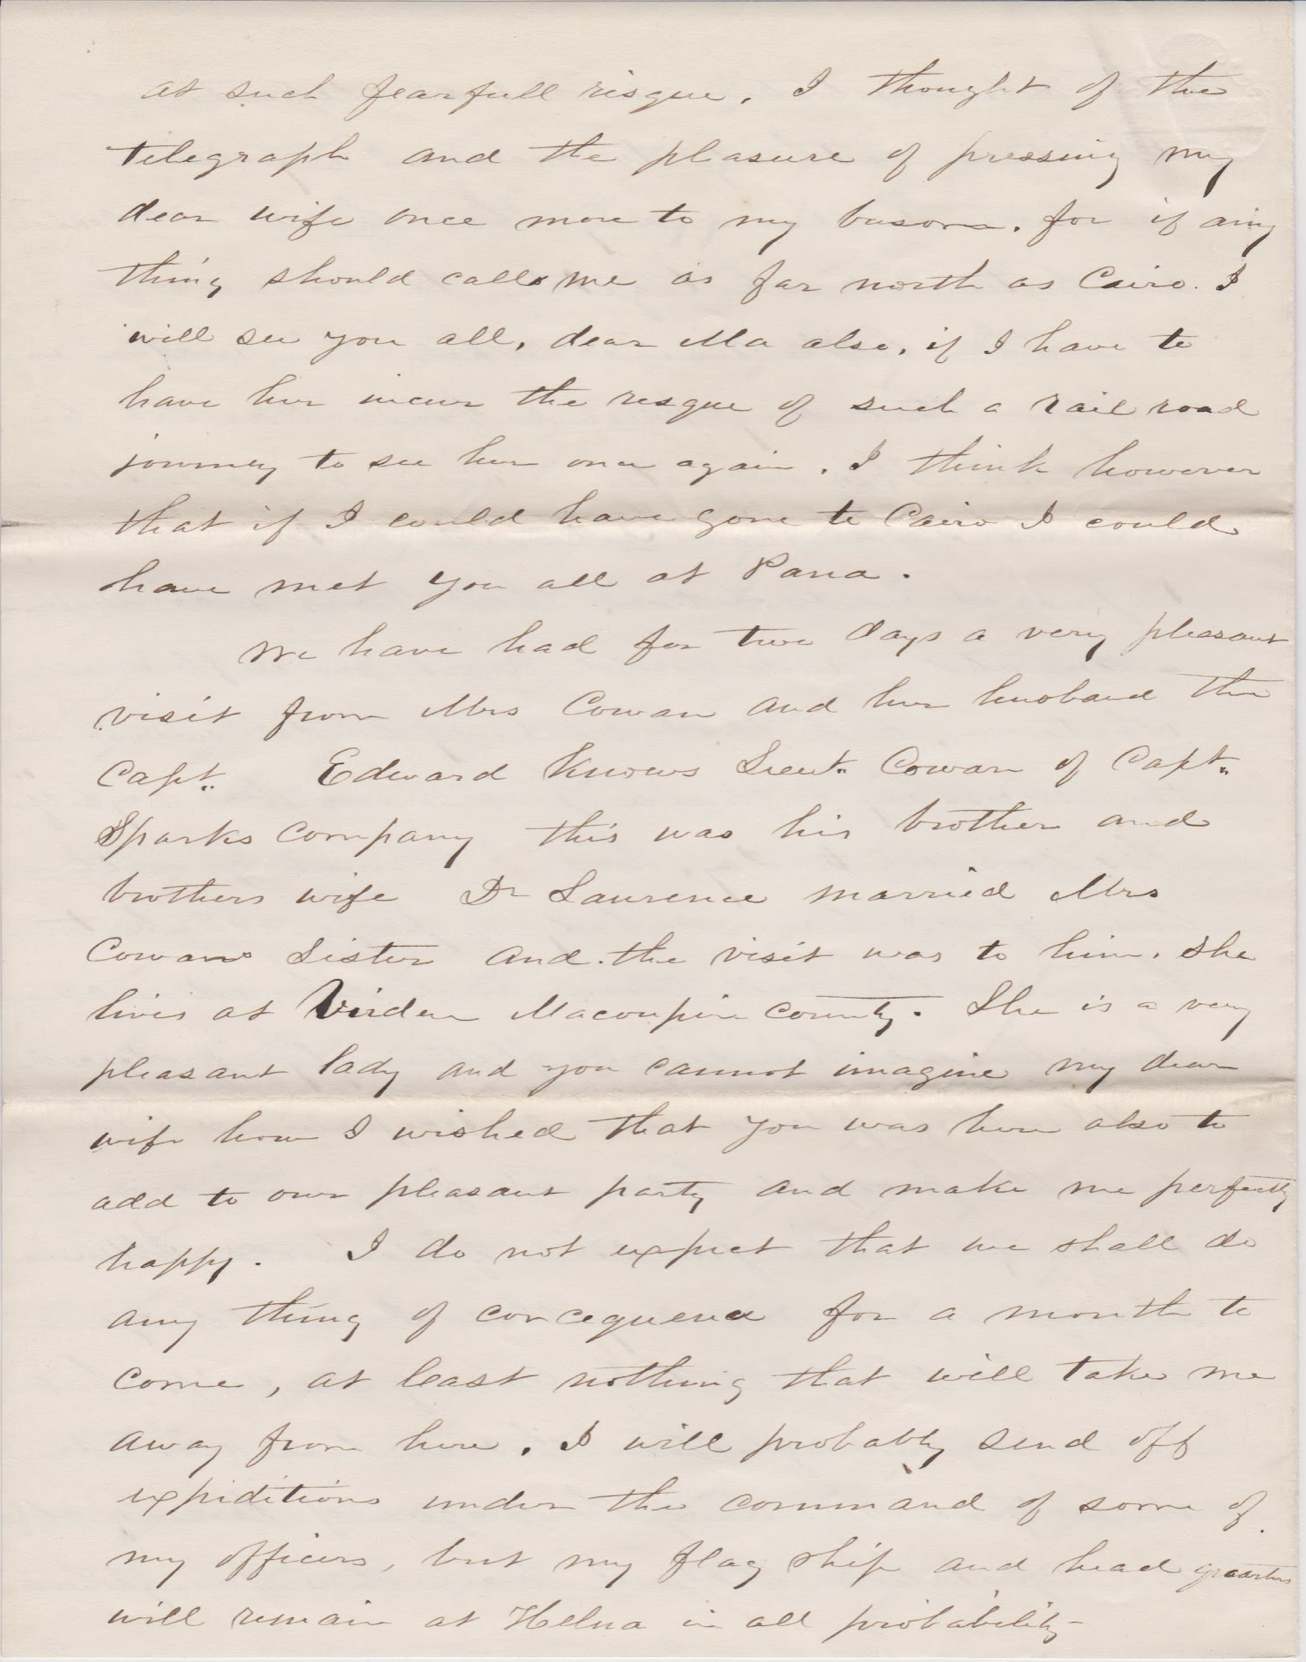 at such fearfull risque. I thought of the
telegraph and the pleasure of pressing my
dear wife once more to my busom. for if any
thing should call me as far north as Cairo. I
will see you all, dear Ma also, if I have to
have her incur the resque of such a rail road
journey to see her once again. I think however
that if I could have gone to Cairo I could
have met you all at Pana.
We have had for two days a very pleasant
visit from Mrs Cowan and her husband the
Capt. Edward knows Lieut. Cowan of Capt.
Sparks company this was his brother and
brothers wife Dr Laurence married Mrs
Cowans Sister and the visit was to him. She
lives at Virden Macoupin county. She is a very
pleasant lady and you cannot imagine my dear
wife how I wished that you was here also to
add to our pleasant party and make me perfectly
happy. I do not expect that we shall do
any thing of concequence for a month to
come, at least nothing that will take me
away from here. I will probably send off
expiditions under the command of some of
my officers, but my flag ship and head quarters
will remain at Helena in all probability